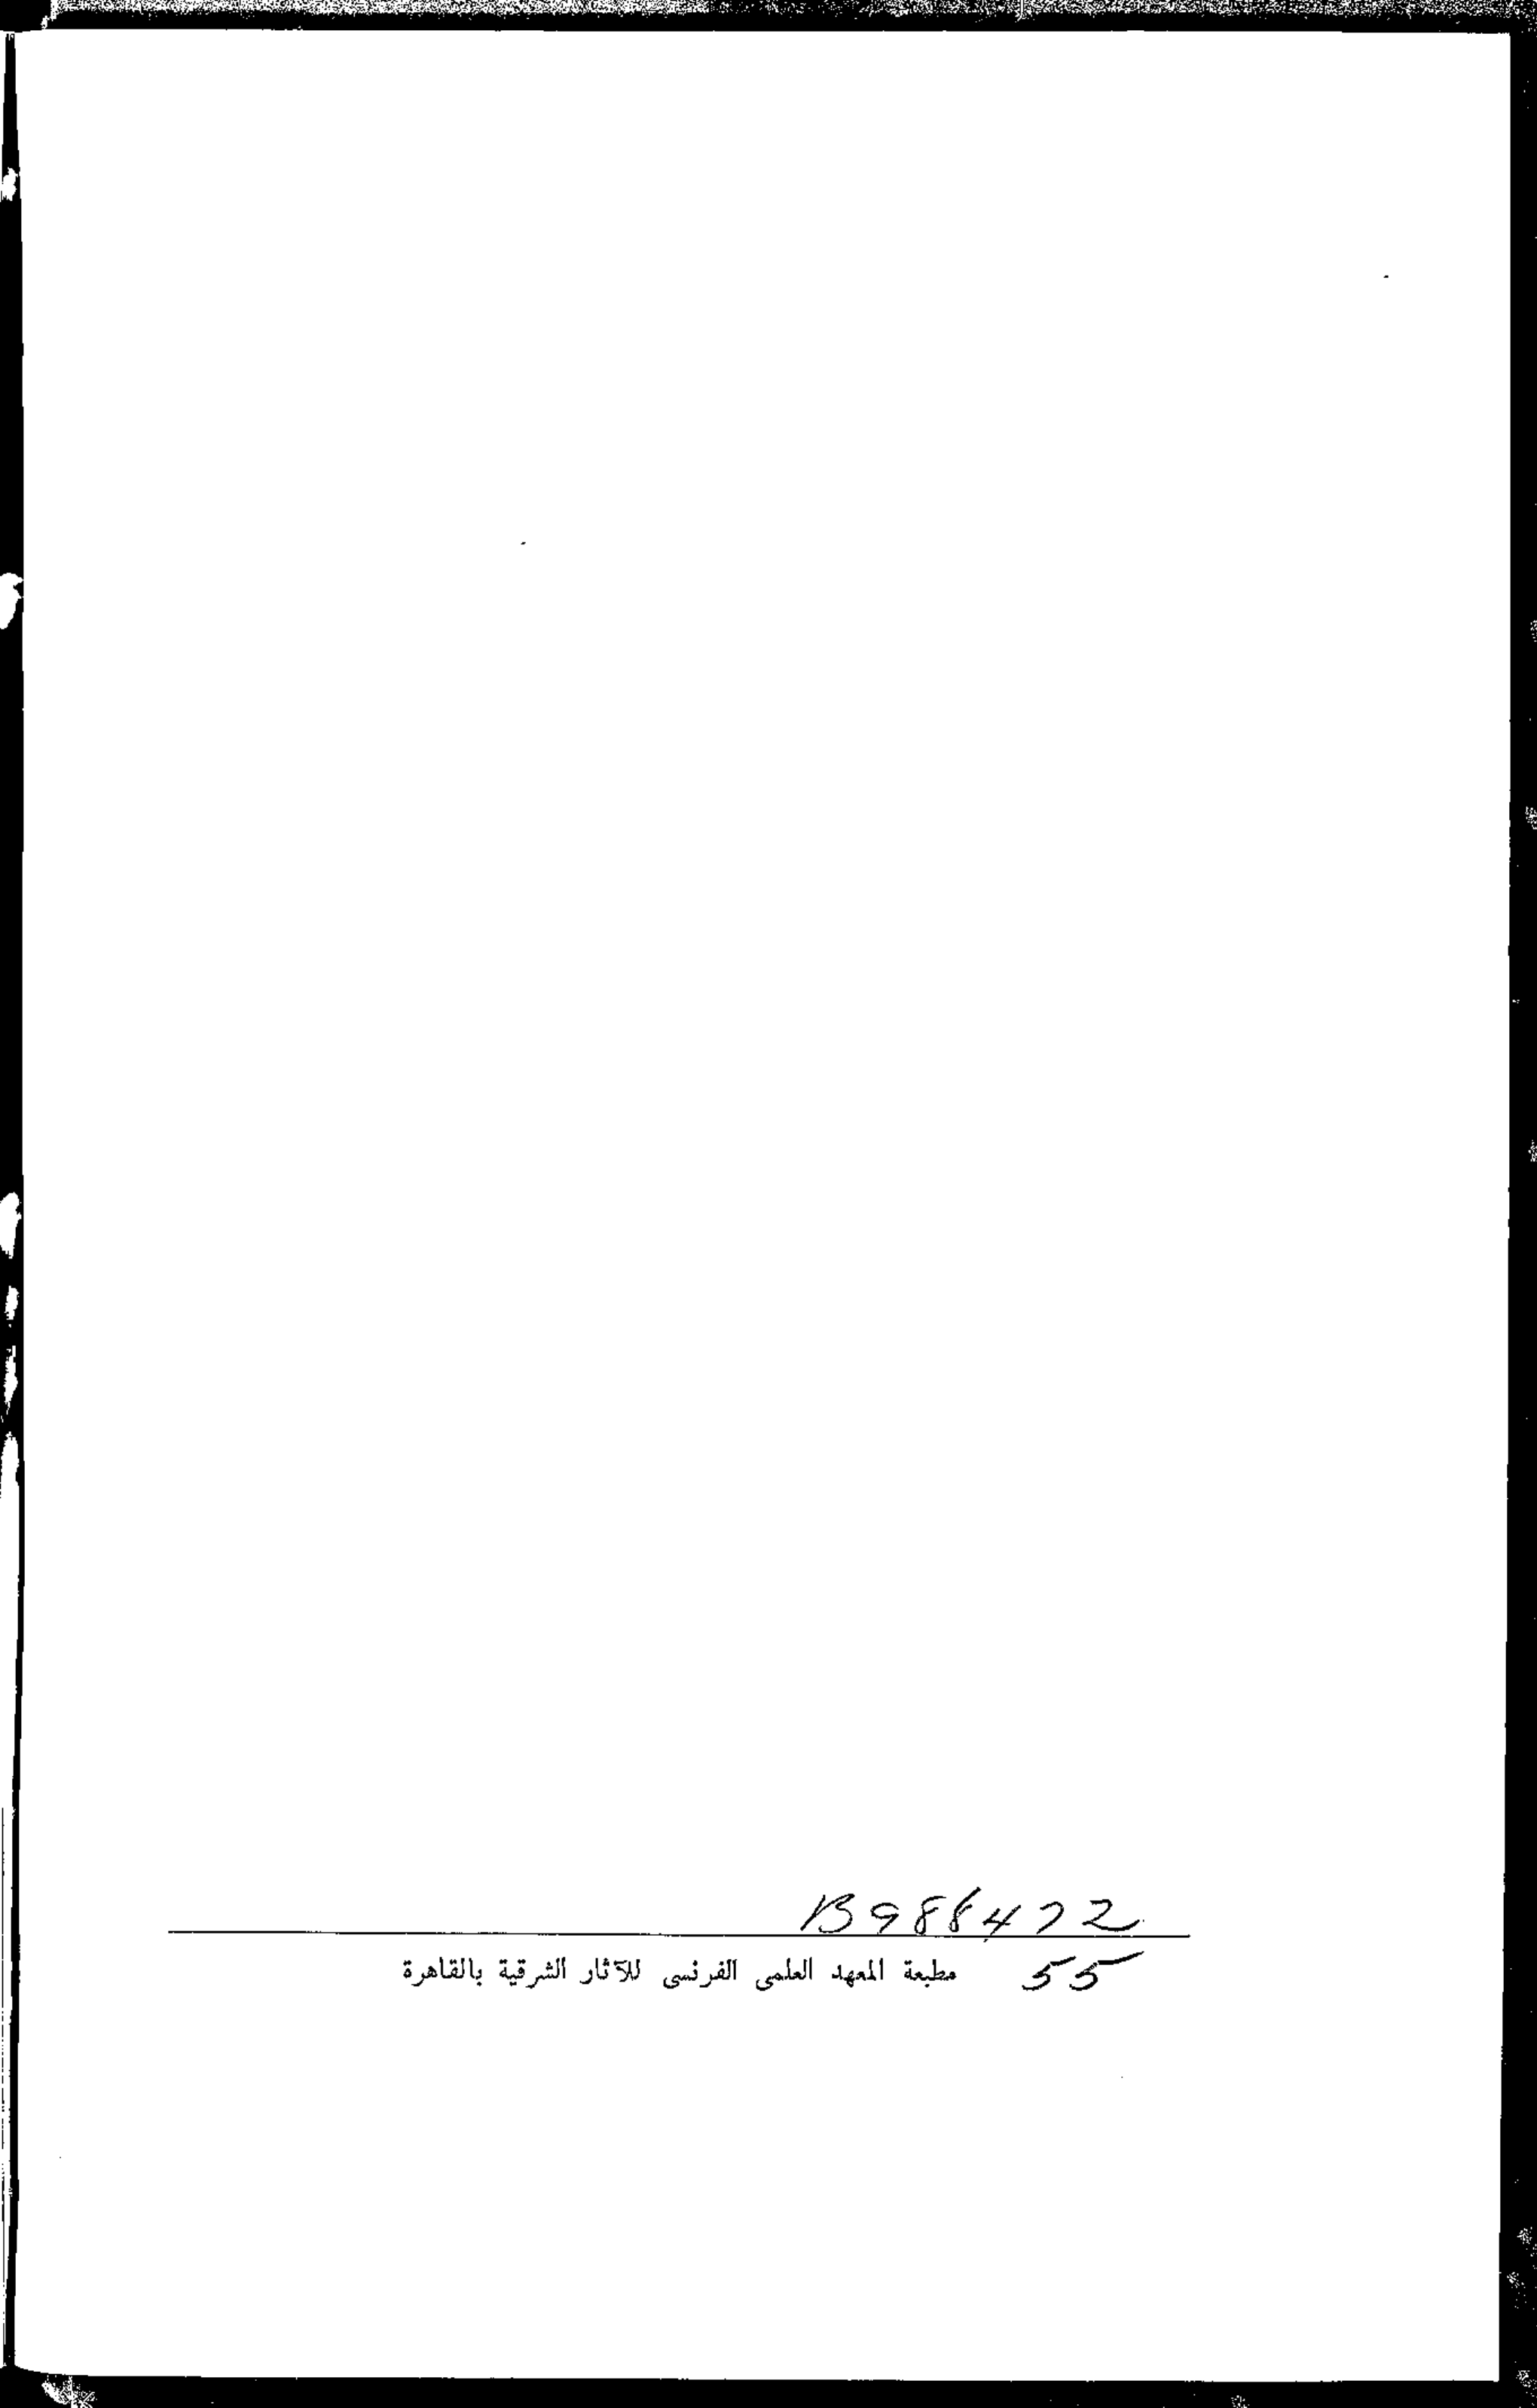 B988472
مطبعة المعهد العلمى الفرنسى للآثار الشرقية بالقاهرة 55